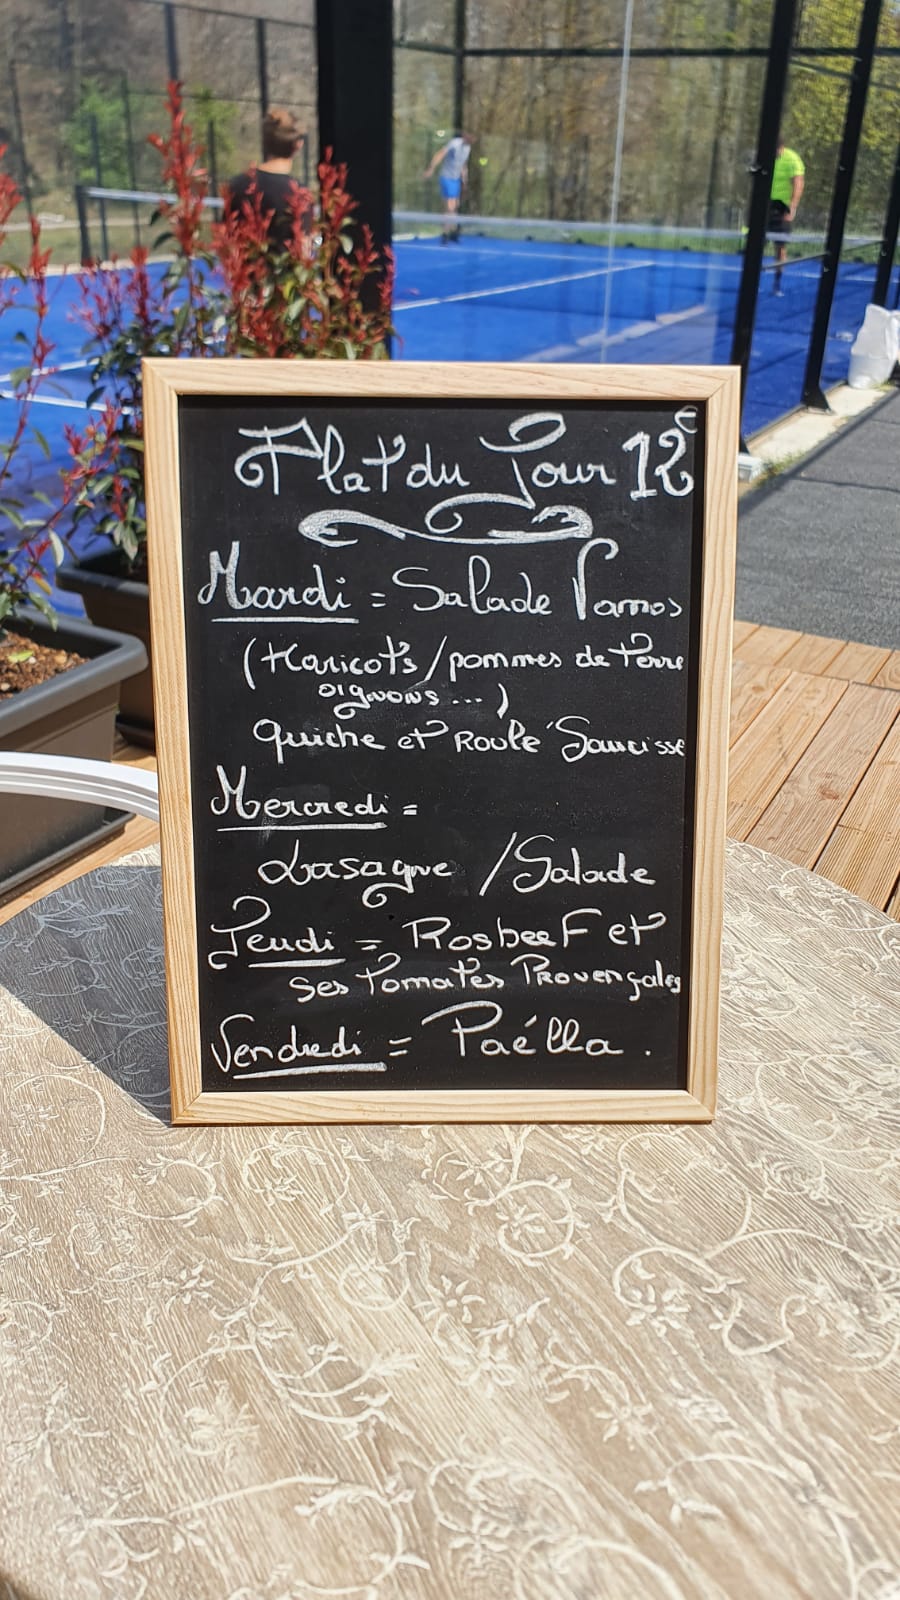 Plat du Jour 12€
Mardi = Salade Vamos
(Haricots/pommes de terre
oignons...)
Quiche et Roulé Saucisse
Mercredi =
Lasagne / Salade
Jeudi = Rosbeef et
ses tomates Provençales
Vendredi = Paélla.